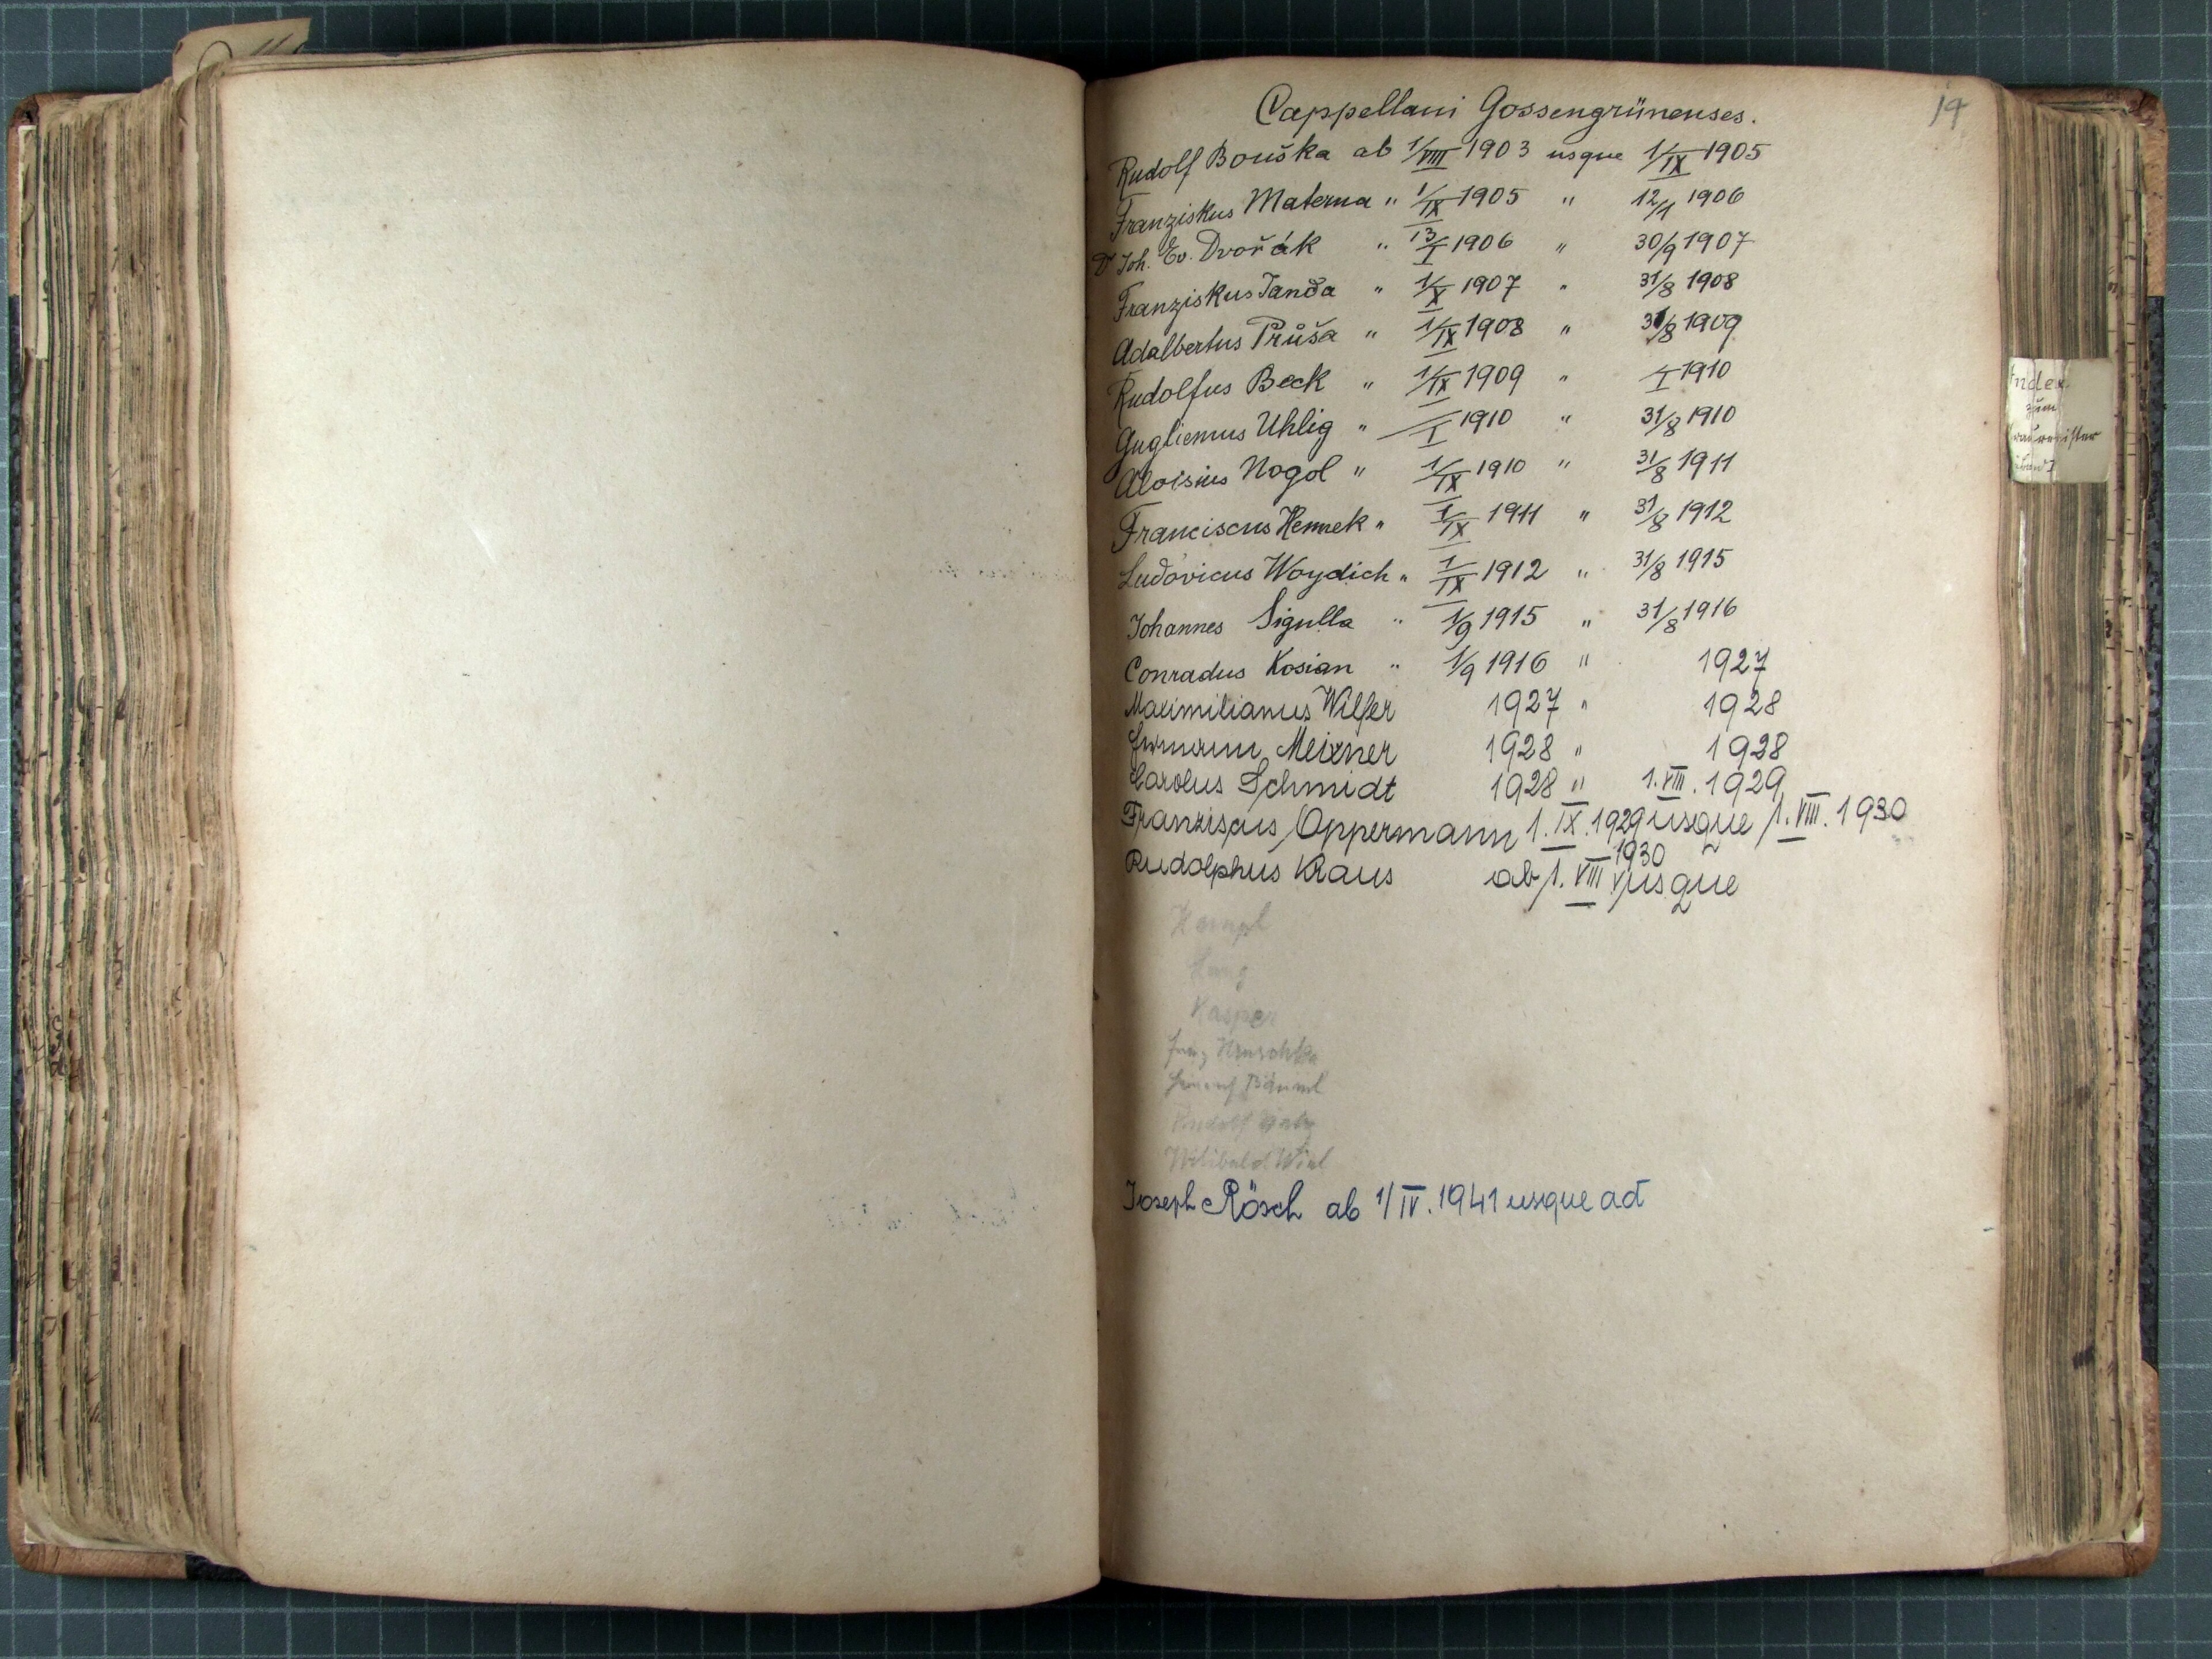 14
Cappellani Gossengrünenses.
Rudolf Bouška ab 1/VIII 1903 usque 1/IX 1905
Franziskus Materna " 1/IX 1905 " 12/1 1906
Dr Joh. Ev. Dvořák " 13/I 1906 " 30/9 1907
Franziskus Janda " 1/X 1907 " 31/8 1908
Adalbertus Průša " 1/IX 1908 " 31/8 1909
Rudolfus Beck " 1/IX 1909 " /I 1910
Gugliemus Uhlig " /I 1910 " 31/8 1910
Aloisius Nogol " 1/IX 1910 " 31/8 1911
Franciscus Hennek " 1/IX 1911 " 31/8 1912
Ludovicus Woydich " 1/IX 1912 " 31/8 1915
Johannes Sigulla " 1/9 1915 " 31/8 1916
Conradus Kosian " 1/9 1916 " 1927
Maximilianus Wilfer 1927 " 1928
Meixner 1928 " 1928
Carolus Schmidt 1928 " 1. VIII. 1929
Franziscus Oppermann 1. IX. 1929 usque 1. VIII. 1930
Rudolphus Kraus ab 1. VIII 1930 usque
Hempl
Kasper
Franz Hruschka
Bäuml
Rudolf
Wilibald Wirl
Joseph Rösch ab 1/IV. 1941 usque ad
Index
zum